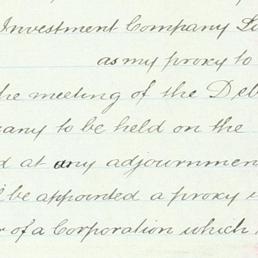 Investment Company
as my proxy to
the meeting of the Deb
any to be held on the
d at any adjournmen
be appointed a proxy
of a Corporation which